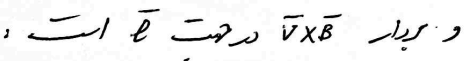 و بردار V̄×B̄ در جهت ē است :